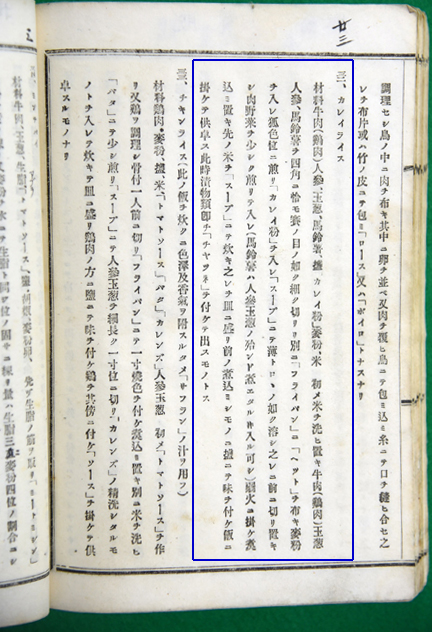 廿三
調理セシ鳥ノ中ニ肉ヲ布キ其中ニ卵ヲ並ベ又肉ヲ覆ヒ鳥ニテ包ミ込ミ糸ニテ口ヲ縫ヒ合セ之
レヲ布片或ハ竹ノ皮ニテ包ミ「ロース」又ハ「ボイロ」トナスナリ
カレイライス
材料牛肉(鷄肉)人參、玉葱、馬鈴薯、鹽「カレイ粉」麥粉、米 初メ米ヲ洗ヒ置キ牛肉(鷄肉)玉葱
人參、馬鈴薯ヲ四角ニ恰モ賽ノ目ノ如ク細ク切リ別ニ「フライパン」ニ「ヘット」ヲ布キ麥粉
ヲ入レ狐色位ニ煎リ「カレイ粉」ヲ入レ「スープ」ニテ薄トロヽノ如ク溶シ之レニ前ニ切リ置キ
シ肉野菜ヲ少シク煎リテ入レ(馬鈴薯ハ人參玉葱ノ殆ンド煮エタルトキ入ル可シ)弱火ニ掛ケ煮
込ミ置キ先ノ米ヲ「スープ」ニテ炊キ之レヲ皿ニ盛リ前ノ煮込ミシモノニ鹽ニテ味ヲ付ケ飯ニ
掛ケテ供卓ス此時漬物類即チ「チャツネ」ヲ付ケテ出スモノトス
チキンライス(此ノ飯ヲ炊クニ色澤及香氣ヲ附スルタメ「サフラン」ノ汁ヲ用フ)
材料鷄肉、麥粉、鹽、米「トマトソース」「バタ」「カレンズ」人參玉葱 初メ「トマトソース」ヲ作
リ又鷄ヲ調理シ骨付一人前ニ切リ「フライパン」ニテ一寸燒色ヲ付ケ煮込ミ置キ別ニ米ヲ洗ヒ
「バタ」ニテ少シ煎リ「スープ」ニテ人參玉葱ヲ細長ク一寸位ニ切リ「カレンズ」ノ精洗シタルモ
ノトヲ入レテ炊キテ皿ニ盛リ鷄肉ノ方ニ鹽ニテ味ヲ付ケ鷄ヲ其傍ニ付ケ「ソース」ヲ掛ケテ供
卓スルモノナリ